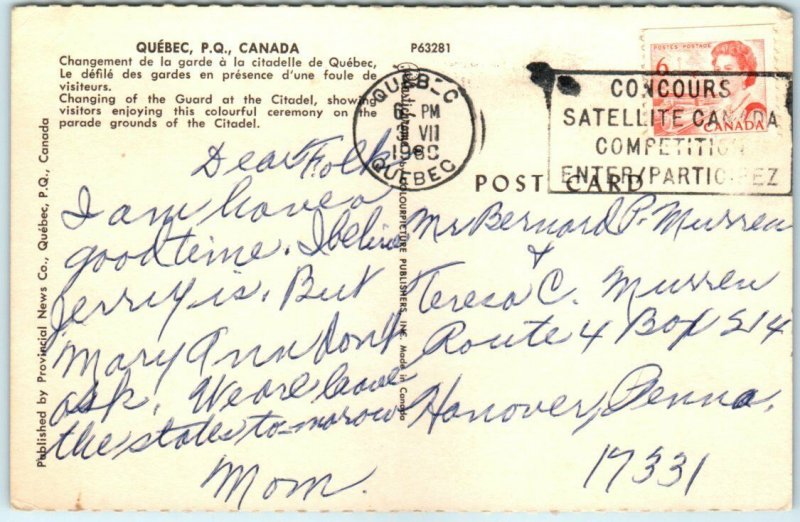 QUÉBEC, P.Q., CANADA
Changement de la garde à la citadelle de Québec,
Le défilé des gardes en présence d'une foule de
visiteurs.
Changing of the Guard at the Citadel, showing
visitors enjoying this colourful ceremony on the
parade grounds of the Citadel.
P63281
Published by Provincial News Co., Québec, P.Q., Canada
COLOURPICTURE PUBLISHERS, INC. Made in Canada
QUEBEC
PM
VII
QUEBEC
CONCOURS
SATELLITE CANADA
COMPETITION
ENTER/PARTICIPEZ
POSTES POSTAGE
6
CANADA
POST CARD
Dear Folk
I am have a
good time. I belive
Jerry is. But
Mary Ann dont
ask. We are leave
the states to-morow
Mom.
Mr Bernard P. Murren
&
Teresa C. Murren
Route 4 Box 214
Hanover, Penna.
17331